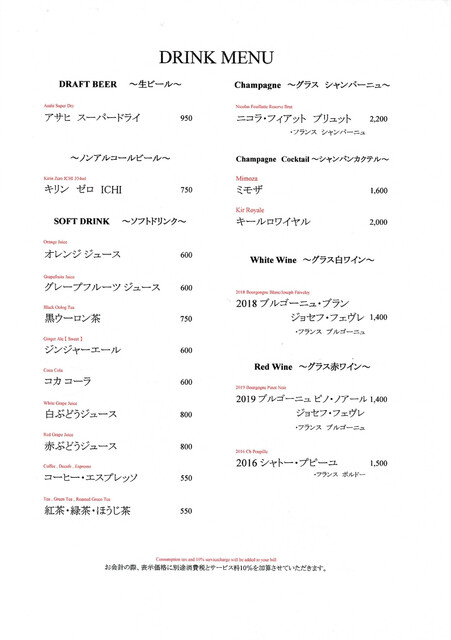 DRINK MENU
DRAFT BEER ～生ビール～
Asahi Super Dry
アサヒ スーパードライ 950
～ノンアルコールビール～
Kirin Zero ICHI 334ml
キリン ゼロ ICHI 750
SOFT DRINK ～ソフトドリンク～
Orange Juice
オレンジ ジュース 600
Grapefruits Juice
グレープフルーツ ジュース 600
Black Oolog Tea
黒ウーロン茶 750
Ginger Ale【 Sweet 】
ジンジャーエール 600
Coca Cola
コカ コーラ 600
White Grape Juice
白ぶどうジュース 800
Red Grape Juice
赤ぶどうジュース 800
Coffee . Decafe . Espresso
コーヒー・エスプレッソ 550
Tea . Green Tea . Roasted Green Tea
紅茶・緑茶・ほうじ茶 550
Champagne ～グラス シャンパーニュ～
Nicolas Feuillatte Reserve Brut
ニコラ・フィアット ブリュット 2,200
・フランス シャンパーニュ
Champagne Cocktail ～シャンパンカクテル～
Mimoza
ミモザ 1,600
Kir Royale
キールロワイヤル 2,000
White Wine ～グラス白ワイン～
2018 Bourgougne Blanc/Joseph
2018 ブルゴーニュ・ブラン
ジョセフ・フェヴレ 1,400
・フランス ブルゴーニュ
Red Wine ～グラス赤ワイン～
2019 Bourgougne Pinot Noir
2019 ブルゴーニュ ピノ・ノアール 1,400
ジョセフ・フェヴレ
・フランス ブルゴーニュ
2016 Ch Poupille
2016 シャトー・プピーユ 1,500
・フランス ボルドー
Consumption tax and 10% servicecharge will be added to your bill
お会計の際、表示価格に別途消費税とサービス料10%を加算させていただきます。